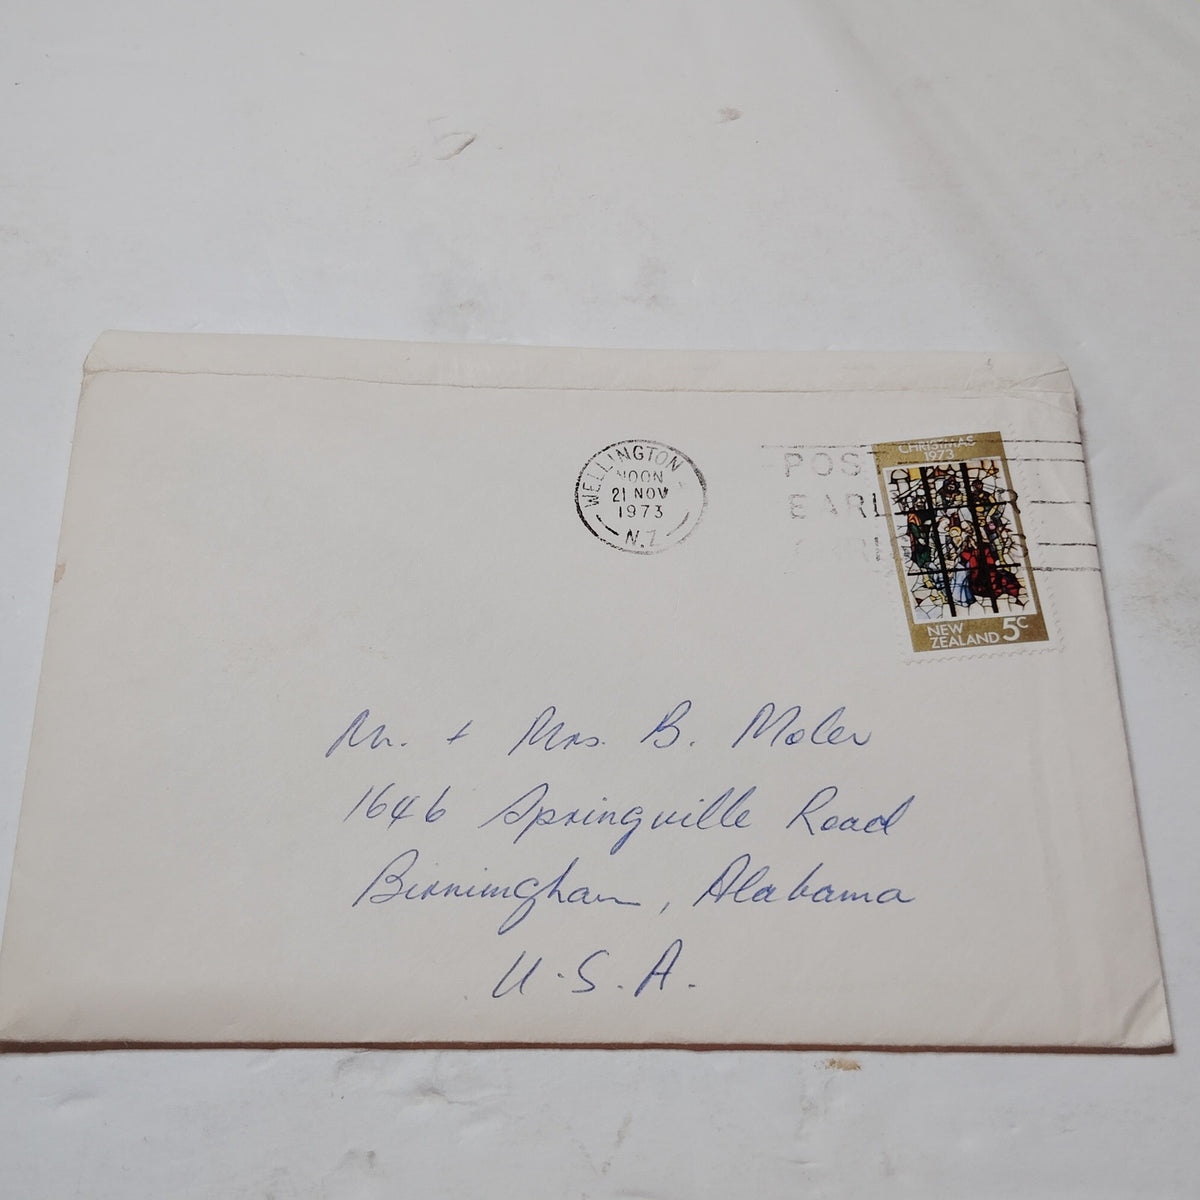 WELLINGTON
NOON
21 NOV
1973
N.Z.
POST
EARLY FOR
CHRISTMAS
CHRISTMAS
1973
NEW
ZEALAND 5c
Mr. + Mrs. B. Moler
1646 Springville Road
Birmingham, Alabama
U.S.A.